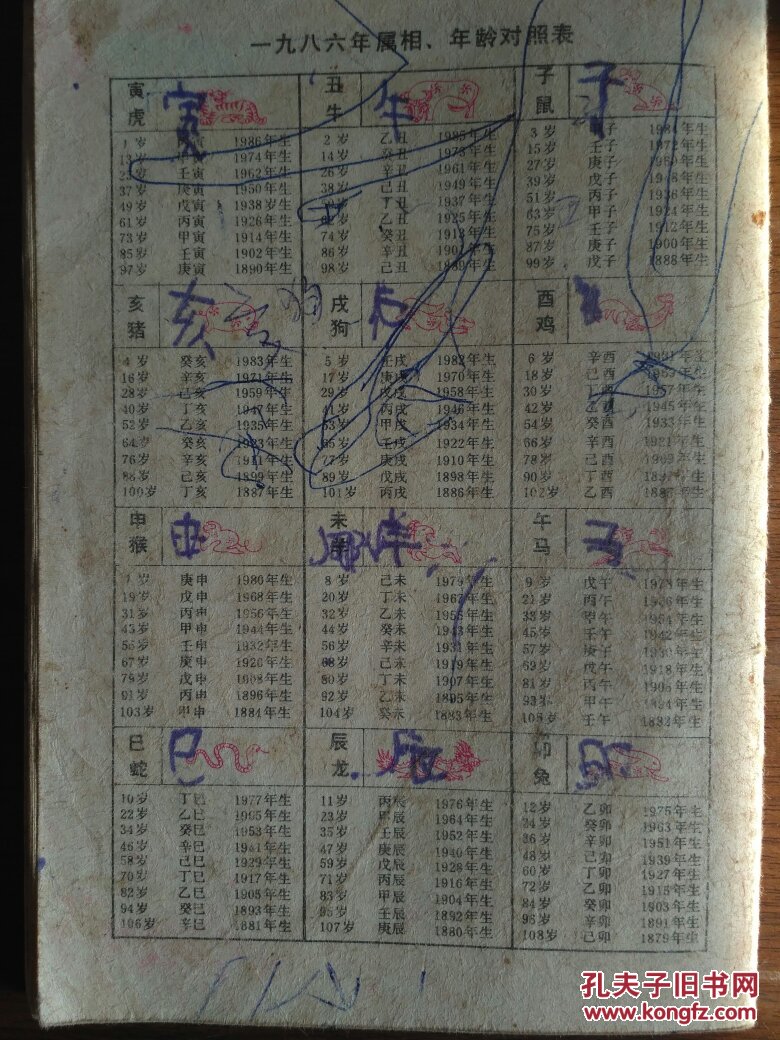 一九八六年属相、年龄对照表
寅虎 寅
丑牛 牛
子鼠 子
1岁 丙寅 1986年生
甲寅 1974年生
壬寅 1962年生
37岁 庚寅 1950年生
49岁 戊寅 1938岁生
61岁 丙寅 1926年生
73岁 甲寅 1914年生
85岁 壬寅 1902年生
97岁 庚寅 1890年生
2岁 乙丑 1985年生
14岁 癸丑 1973年生
26岁 辛丑 1961年生
38岁 己丑 1949年生
丁丑 1937年生
乙丑 1925年生
74岁 癸丑 1913年生
86岁 辛丑 1901年生
98岁 己丑 1889年生
3岁 子 1984年生
15岁 壬子 1972年生
27岁 庚子 1960年生
39岁 戊子 1948年生
51岁 丙子 1936年生
63岁 甲子 1924年生
75岁 壬子 1912年生
87岁 庚子 1900年生
99岁 戊子 1888年生
亥猪 亥
狗
戌狗
酉鸡
4岁 癸亥 1983年生
16岁 辛亥 1971年生
28岁 己亥 1959年生
40岁 丁亥 1947年生
52岁 乙亥 1935年生
64岁 癸亥 1923年生
76岁 辛亥 1911年生
88岁 己亥 1899年生
100岁 丁亥 1887年生
5岁 壬戌 1982年生
17岁 庚戌 1970年生
29岁 戊戌 1958年生
41岁 丙戌 1946年生
53岁 甲戌 1934年生
65岁 壬戌 1922年生
77岁 庚戌 1910年生
89岁 戊戌 1898年生
101岁 丙戌 1886年生
6岁 辛酉 1981年生
18岁 己酉
30岁 丁酉 1957年生
42岁 乙酉 1945年生
54岁 癸酉 1933年生
66岁 辛酉 1921年生
78岁 己酉 1909年生
90岁 丁酉
102岁 乙酉
申猴
未羊
午马 马
7岁 庚申 1980年生
19岁 戊申 1968年生
31岁 丙申 1956年生
43岁 甲申 1944年生
55岁 壬申 1932年生
67岁 庚申 1920年生
79岁 戊申 1908年生
91岁 丙申 1896年生
103岁 甲申 1884年生
8岁 己未 1979年生
20岁 丁未 1967年生
32岁 乙未 1955年生
44岁 癸未 1943年生
56岁 辛未 1931年生
68岁 己未 1919年生
80岁 丁未 1907年生
92岁 乙未 1895年生
104岁 癸未 1883年生
9岁 戊午 1978年生
21岁 丙午 1966年生
33岁 甲午 1954年生
45岁 壬午 1942年生
57岁 庚子 1930年生
69岁 戊午 1918年生
81岁 丙午 1906年生
93岁 甲午 1894年生
105岁 壬午 1882年生
巳蛇 巳
辰龙
卯兔
10岁 丁巳 1977年生
22岁 乙巳 1965年生
34岁 癸巳 1953年生
46岁 辛巳 1941年生
58岁 己巳 1929年生
70岁 丁巳 1917年生
82岁 乙巳 1905年生
94岁 癸巳 1893年生
106岁 辛巳 1881年生
11岁 丙辰 1976年生
23岁 甲辰 1964年生
35岁 壬辰 1952年生
47岁 庚辰 1940年生
59岁 戊辰 1928年生
71岁 丙辰 1916年生
83岁 甲辰 1904年生
95岁 壬辰 1892年生
107岁 庚辰 1880年生
12岁 乙卯 1975年生
24岁 癸卯 1963年生
36岁 辛卯 1951年生
48岁 己卯 1939年生
60岁 丁卯 1927年生
72岁 乙卯 1915年生
84岁 癸卯 1903年生
96岁 辛卯 1891年生
108岁 己卯 1879年生
孔夫子旧书网
www.kongfz.com